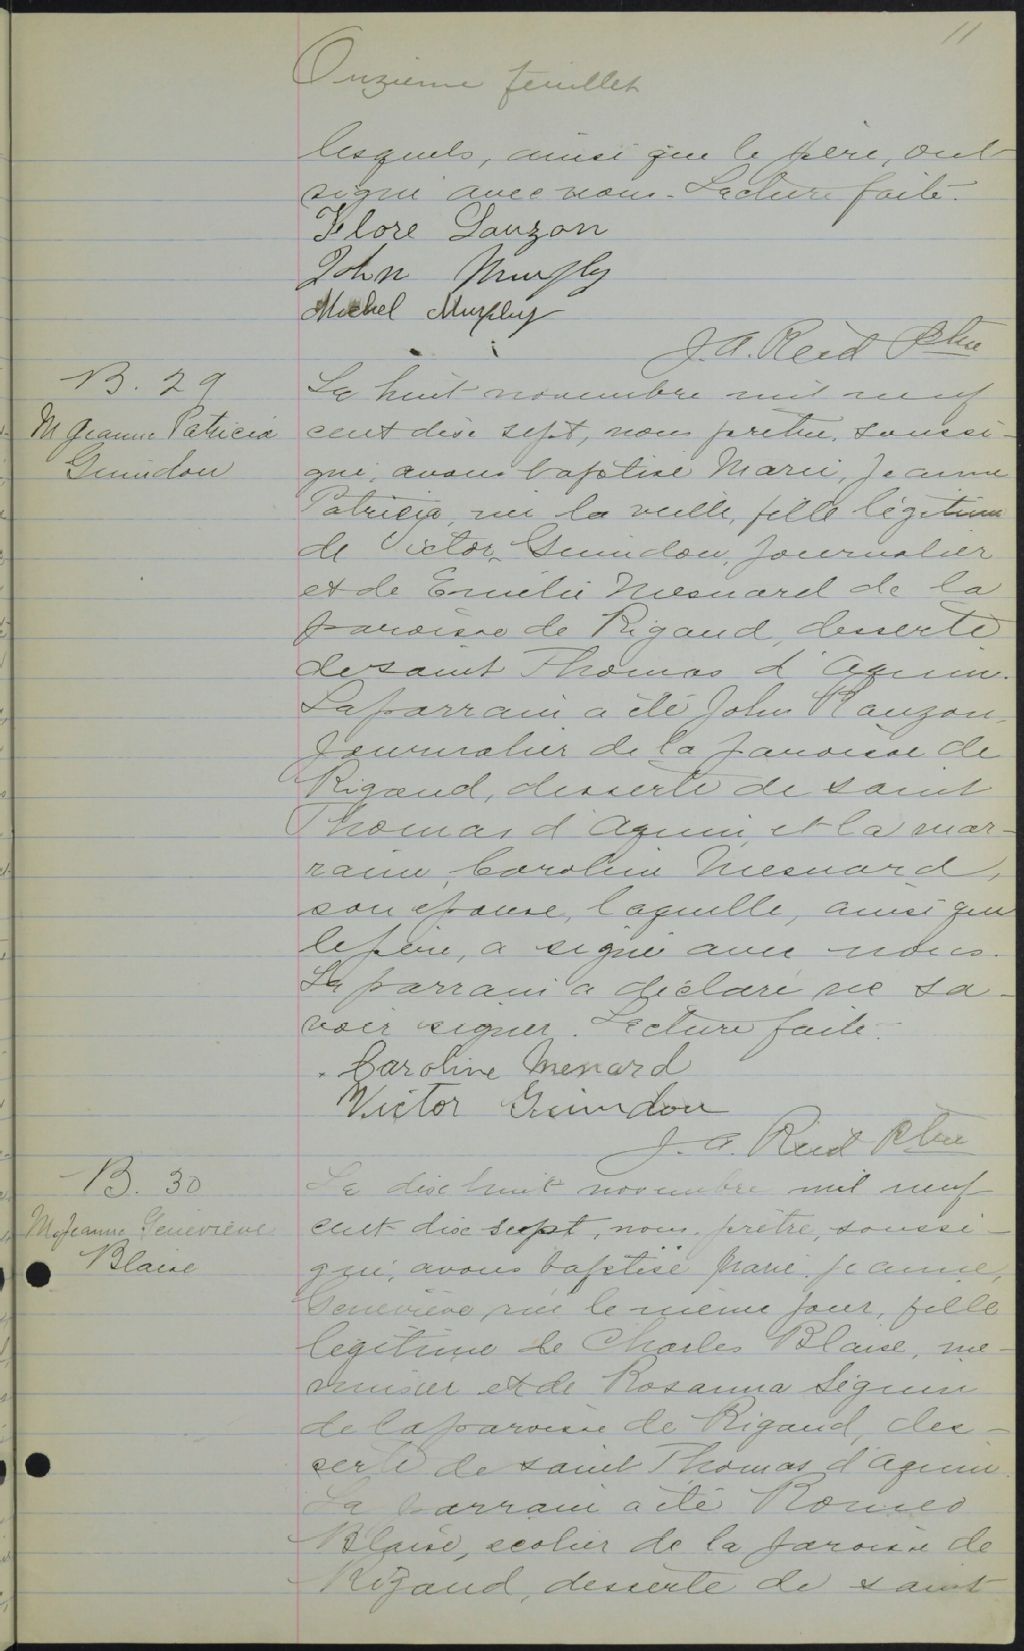 11
Onzième feuillet
lesquels, ainsi que le père, ont
signé avec nous. Lecture faite.
Flore Lauzon
John Murphy
Michel Murphy
J. A. Reid Ptre
B. 29
M Jeanne Patricia
Guindon
Le huit novembre mil neuf
cent dix sept, nous prêtre, soussi-
gné, avons baptisé Marie, Jeanne
Patricia, née la veille, fille légitime
de Victor Guindon, journalier
et de Emélie Mesnard de la
paroisse de Rigaud, desserte
de saint Thomas d'Aquin.
Le parrain a été John Rauzon,
journalier de la paroisse de
Rigaud, desserte de saint
Thomas d'Aquin, et la mar-
raine, Caroline Mesnard,
son épouse, laquelle, ainsi que
le père, a signé avec nous.
Le parrain a déclaré ne sa-
voir signer. Lecture faite.
Caroline Menard
Victor Guindon
J. A. Reid Ptre
B. 30
M Jeanne Geneviève
Blaise
Le dix huit novembre mil neuf
cent dix sept, nous, prêtre, soussi-
gné, avons baptisé Marie, Jeanne,
Geneviève, née le même jour, fille
légitime de Charles Blaise, me-
nuisier et de Rosanna Séguin
de la paroisse de Rigaud, des-
serte de saint Thomas d'Aquin.
Le parrain a été Romeo
Blaise, écolier de la paroisse de
Rigaud, desserte de saint